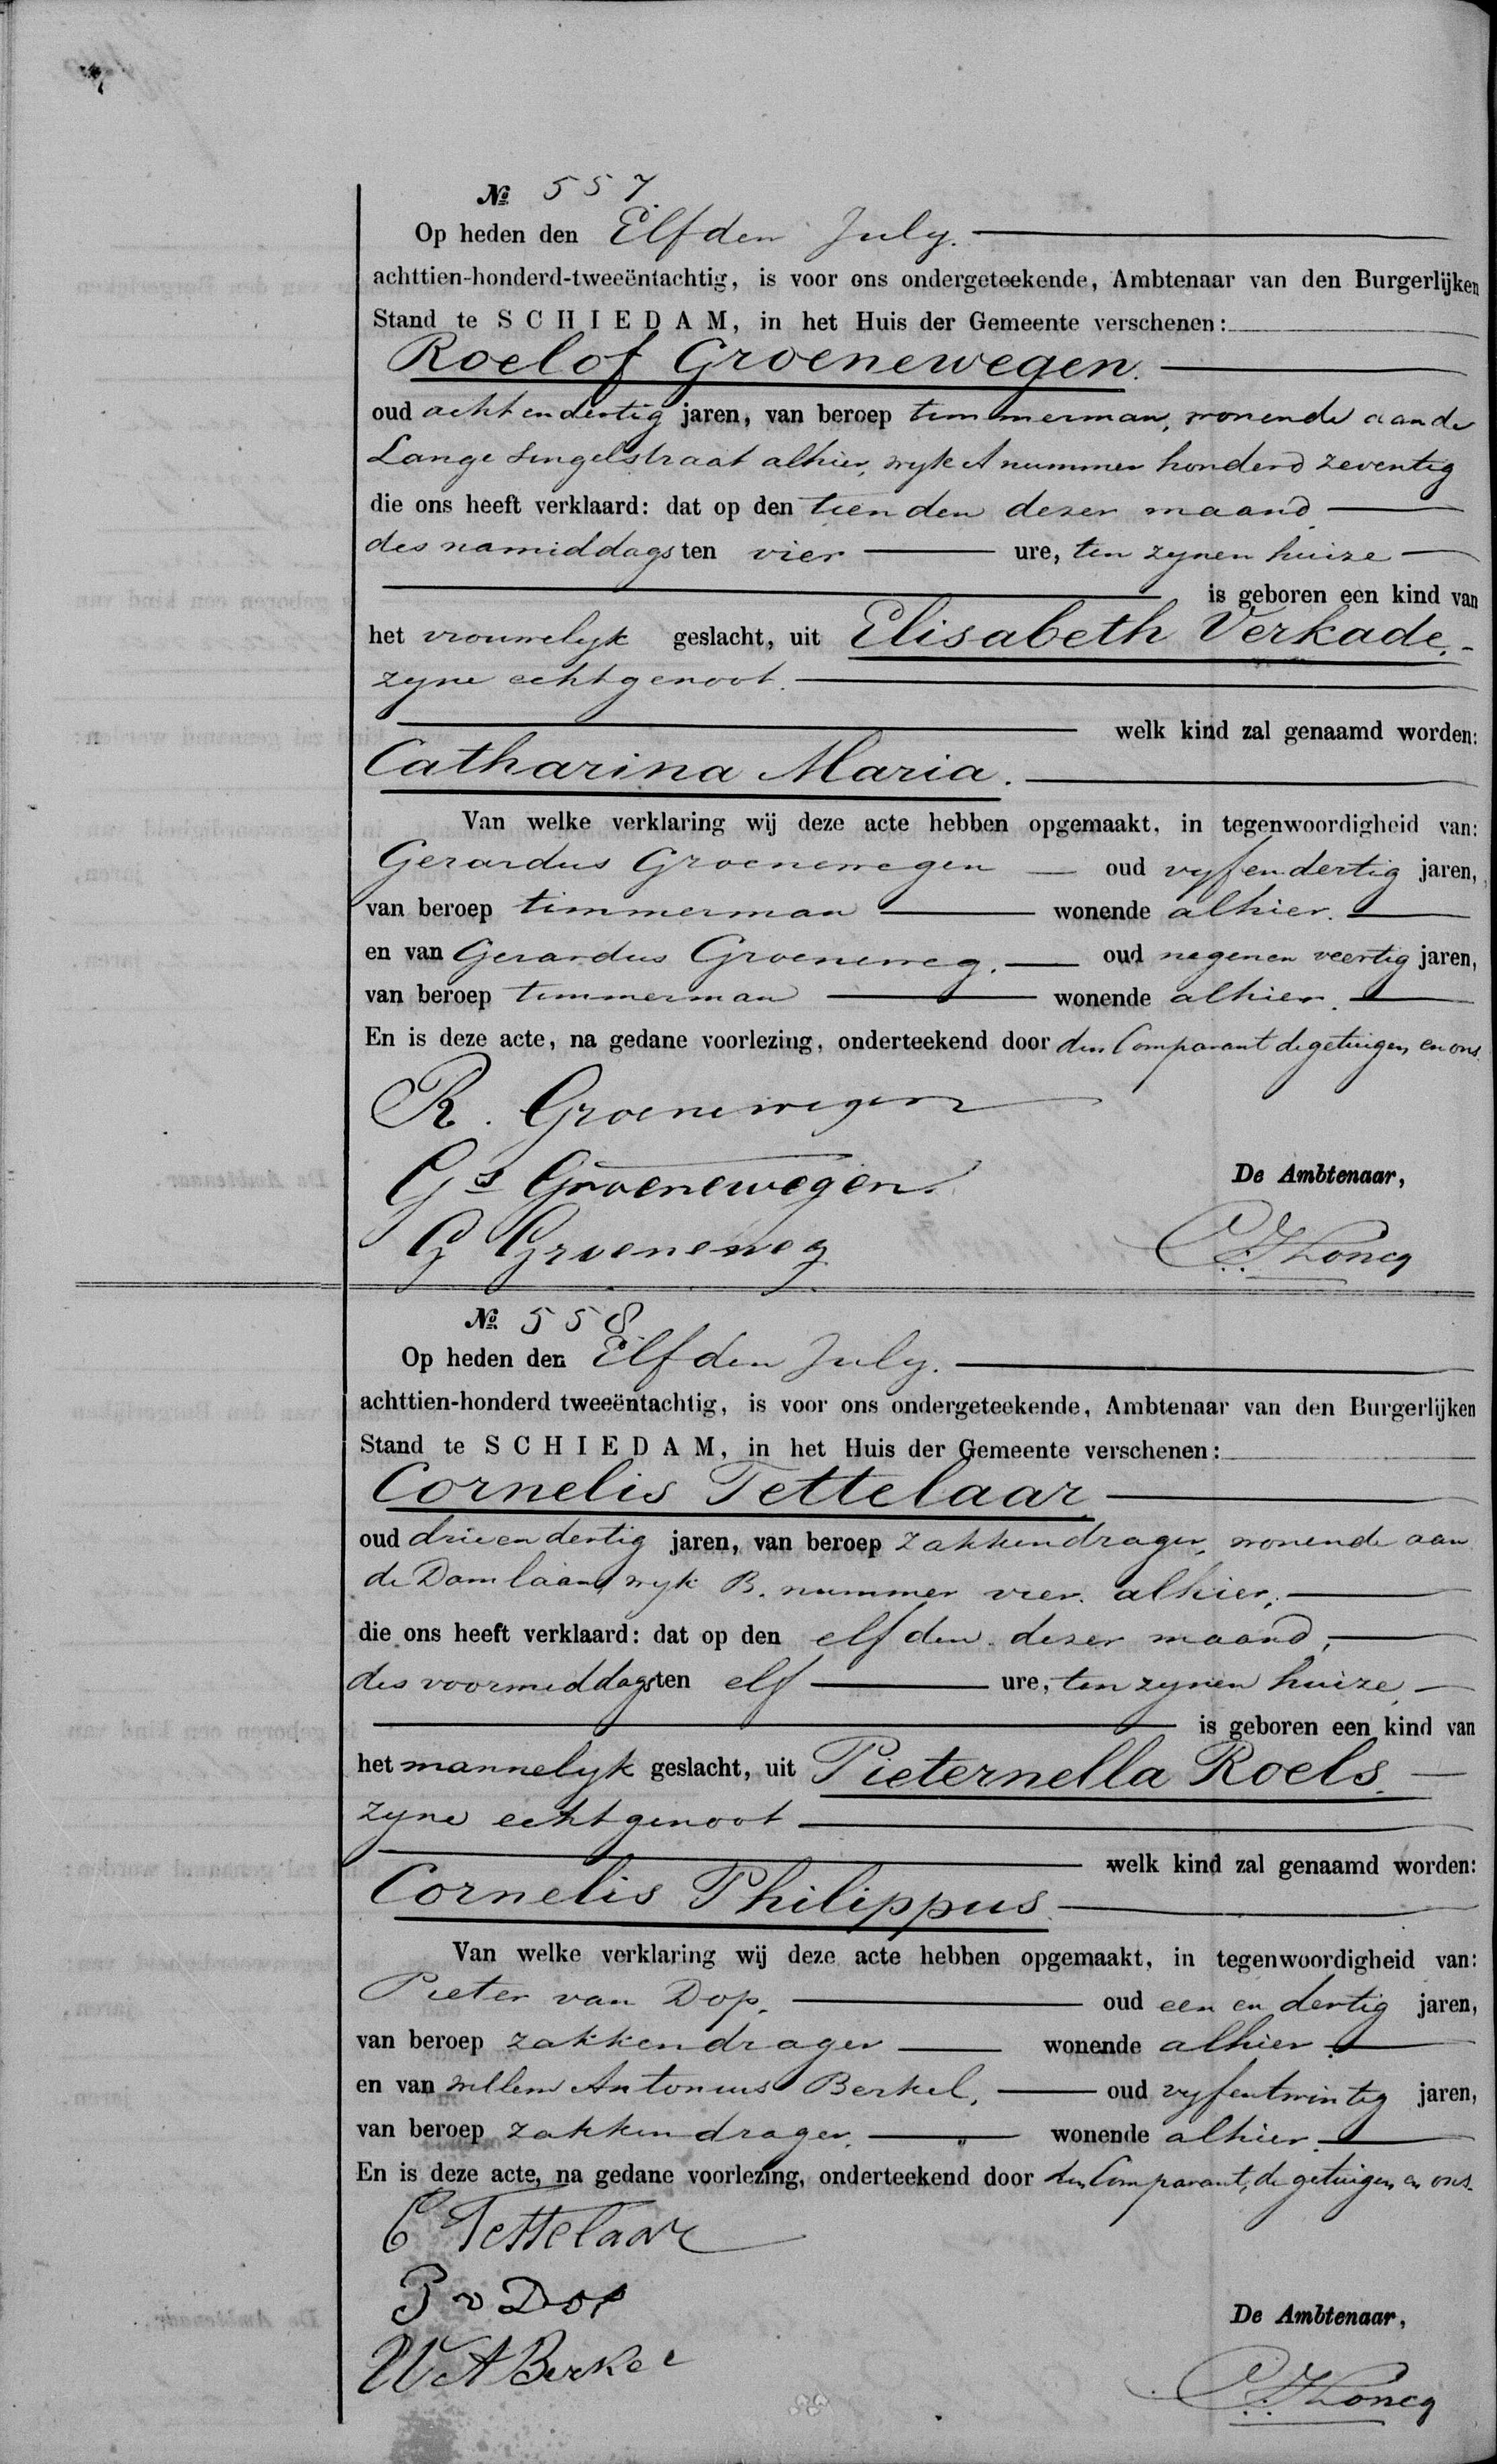 № 557.
Op heden den Elfden July.
achttien-honderd-tweeëntachtig, is voor ons ondergeteekende, Ambtenaar van den Burgerlijken
Stand te SCHIEDAM, in het Huis der Gemeente verschenen:
Roelof Groenewegen.
oud achtendertig jaren, van beroep timmerman, wonende aan de
Lange Singelstraat alhier, wyk A nummer honderd zeventig
die ons heeft verklaard: dat op den tienden dezer maand
des namiddags ten vier ure, ten zynen huize
is geboren een kind van
het vrouwelyk geslacht, uit Elisabeth Verkade.
zyne echtgenoot.
welk kind zal genaamd worden:
Catharina Maria.
Van welke verklaring wij deze acte hebben opgemaakt, in tegenwoordigheid van:
Gerardus Groenewegen oud vyfendertig jaren,
van beroep timmerman wonende alhier.
en van Gerardus Groeneweg. oud negenen veertig jaren,
van beroep timmerman wonende alhier.
En is deze acte, na gedane voorlezing, onderteekend door den Comparant de getuigen en ons.
R. Groenewegen
Gs Groenewegen.
De Ambtenaar,
G Groeneweg
№ 558.
Op heden den Elfden July.
achttien-honderd tweeëntachtig, is voor ons ondergeteekende, Ambtenaar van den Burgerlijken
Stand te SCHIEDAM, in het Huis der Gemeente verschenen:
Cornelis Tettelaar
oud drieendertig jaren, van beroep zakkendrager, wonende aan
de Damlaan, wyk B. nummer vier. alhier,
die ons heeft verklaard: dat op den elfden dezer maand,
des voormiddags ten elf ure, ten zynen huize,
is geboren een kind van
het mannelyk geslacht, uit Pieternella Roels.
zyne echtgenoot
welk kind zal genaamd worden:
Cornelis Philippus.
Van welke verklaring wij deze acte hebben opgemaakt, in tegenwoordigheid van:
Pieter van Dop. oud een en dertig jaren,
van beroep zakkendrager wonende alhier.
en van Willem Antonius Berkel, oud vyfentwintig jaren,
van beroep zakkendrager. wonende alhier.
En is deze acte, na gedane voorlezing, onderteekend door den Comparant, de getuigen en ons.
C Tettelaar
P v Dop
De Ambtenaar,
W A Berkel